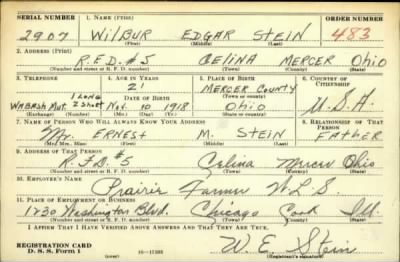 SERIAL NUMBER 1. NAME (Print) ORDER NUMBER
2907 WILBUR EDGAR STEIN 483
(First) (Middle) (Last)
2. ADDRESS (Print)
R.F.D. #5 CELINA MERCER OHIO
(Number and street or R. F. D. number) (Town) (County) (State)
3. TELEPHONE 4. AGE IN YEARS 5. PLACE OF BIRTH 6. COUNTRY OF CITIZENSHIP
21 MERCER COUNTY
1 LONG DATE OF BIRTH (Town or county)
WABASH Mut. 2 Short Nov. 10 1918 OHIO U.S.A.
(Exchange) (Number) (Mo.) (Day) (Yr.) (State or country)
7. NAME OF PERSON WHO WILL ALWAYS KNOW YOUR ADDRESS 8. RELATIONSHIP OF THAT PERSON
Mr. ERNEST M. STEIN FATHER
(Mr., Mrs., Miss) (First) (Middle) (Last)
9. ADDRESS OF THAT PERSON
R.F.D. #5 Celina Mercer Ohio
(Number and street or R. F. D. number) (Town) (County) (State)
10. EMPLOYER'S NAME
Prairie Farmer W.L.S.
11. PLACE OF EMPLOYMENT OR BUSINESS
1230 Washington Blvd. Chicago Cook Ill.
(Number and street or R. F. D. number) (Town) (County) (State)
I AFFIRM THAT I HAVE VERIFIED ABOVE ANSWERS AND THAT THEY ARE TRUE.
REGISTRATION CARD
D. S. S. Form 1 (over) 16—17105 W. E. Stein
(Registrant's signature)